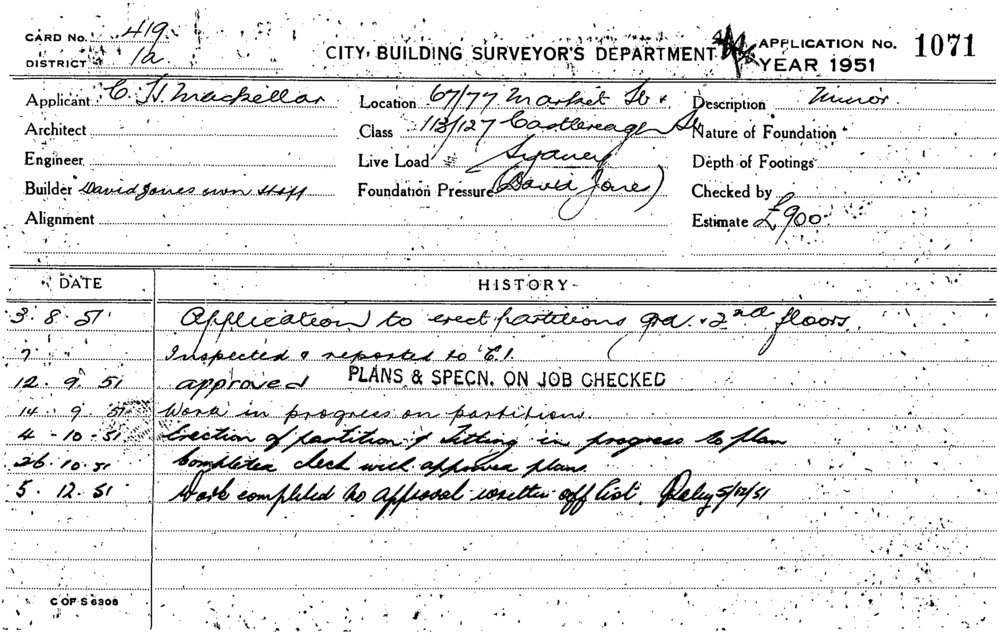 CARD No. 419
DISTRICT 1a
CITY BUILDING SURVEYOR'S DEPARTMENT
APPLICATION No. 1071
YEAR 1951
Applicant C. H. Mackellar
Location 67/77 Market St &
Description Minor
Architect
Class 113/127 Castlereagh St
Nature of Foundation
Engineer
Live Load Sydney
Depth of Footings
Builder David Jones own Staff
Foundation Pressure (David Jones)
Checked by
Alignment
Estimate £900
DATE HISTORY
3. 8. 51 Application to erect partitions grd. & 2nd floors
7 " " Inspected & reported to E.I.
12. 9. 51 approved PLANS & SPECN. ON JOB CHECKED
14. 9. 51 Work in progress on partitions.
4 - 10 - 51 Erection of partition & fitting in progress to plan
26. 10. 51 Completed check with approved plans
5. 12. 51 Work completed to approval written off list. 5/12/51
C OF S 6308